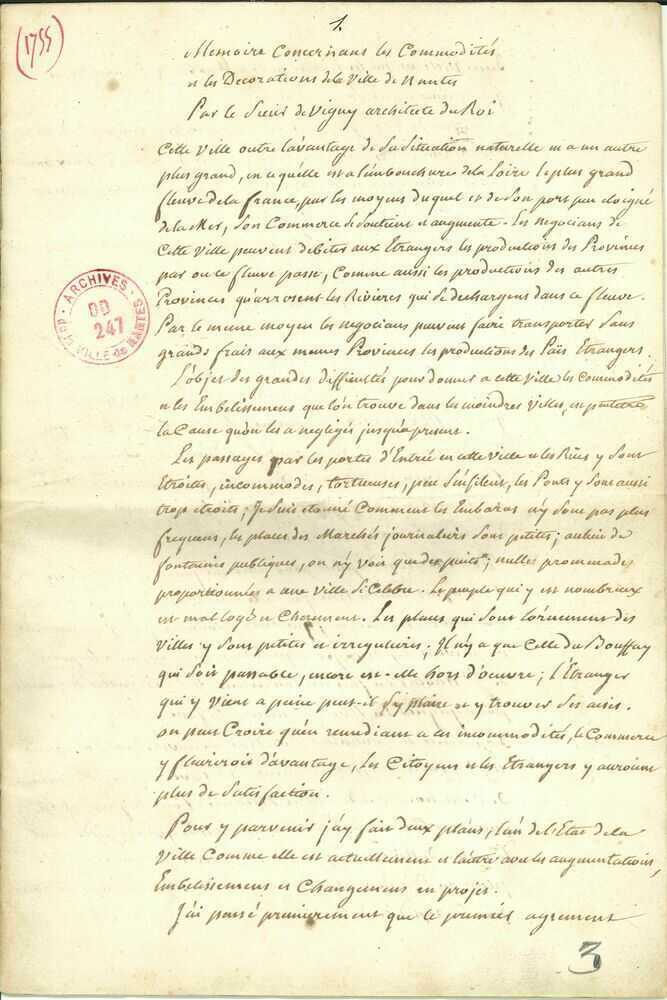 1.
(1755)
Memoire Concernans les Commodités
et les Decorations de la Ville de Nantes
Par le Sieur de Vigny architecte du Roi
Cette Ville outre l'avantage de sa situation naturelle en a un autre
plus grand, en ce qu'elle est a l'embouchure de la Loire le plus grand
fleuve de la france, par les moyens duquel et de son port peu eloigné
de la Mer, son Commerce se soutient et augmente. Les negocians de
Cette Ville peuvent debiter aux Etrangers les productions des Provinces
par ou ce fleuve passe, Comme aussi les productions des autres
Provinces qu'arrosent les Rivieres qui se dechargens dans ce fleuve.
Par le meme moyen les negocians peuvent faire transporter sans
grands frais aux memes Provinces les productions des Païs Etrangers.
L'objet des grandes difficultés pour donner a cette Ville les Commodités
et les Embelissemens que l'on trouve dans les moindres Villes, en
la Cause qu'on les a negligés jusqu'a present.
Les passages par les portes d'Entrée en cette Ville et les Rües y sont
Etroites, incommodes, tortueuses, peu les Ponts y sont aussi
trop etroits; Je suis etonné Comment les Embaras n'y sont pas plus
frequens, les places des Marchés journaliers sont petites; au lieu de
fontaines publiques, on n'y voit que des puits; nulles promenades
proportionnées a une Ville si Celebre. Le peuple qui y est nombreux
est mal logé et Cherement. Les places qui sont l'ornement des
Villes y sont petites et irregulieres; Il n'y a que Celle du Bouffay
qui soit passable, encore est-elle hors d'oeuvre; l'Etranger
qui y vient a peine peut-il s'y plaire et y trouver ses aises.
on peut Croire qu'en remediant a ces incommodités, le Commerce
y fleuriroit d'avantage, Les Citoyens et les Etrangers y auroient
plus de satisfaction.
Pour y parvenir j'ay fait deux plans; l'un de l'Etat de la
Ville Comme elle est actuellement et l'autre avec les augmentations,
Embelissemens et Changemens en projet.
J'ai pensé premierement que le premier agrement
3
ARCHIVES
DD
247
VILLE de NANTES